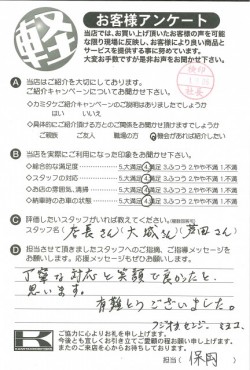 軽
お客様アンケート
当店では、お買い上げ頂いたお客様の声を可能
な限り現場に反映し、お客様により良い商品と
サービスを提供する事に努めています。
大変お手数ですが是非お声をお聞かせ下さい。
A 当店はご紹介を大切にしております。
ご紹介キャンペーンについてお聞かせ下さい。
◇カミタケご紹介キャンペーンのご説明はありましたでしょうか
はい いいえ
◇具体的にご紹介頂ける方とのご関係をお聞かせ頂けますでしょうか
ご親戚 ご友人 職場の方 機会があれば紹介したい
B 当店を実際にご利用になった印象をお聞かせ下さい。
◇総合的な満足度 5.大満足 4.満足 3.ふつう 2.やや不満 1.不満
◇スタッフの対応 5.大満足 4.満足 3.ふつう 2.やや不満 1.不満
◇お店の雰囲気、清掃 5.大満足 4.満足 3.ふつう 2.やや不満 1.不満
◇納車時のお車の状態 5.大満足 4.満足 3.ふつう 2.やや不満 1.不満
C 評価したいスタッフがいれば教えてください。
スタッフ名(店長さん)(大城さん)(芦田さん)
D 担当させて頂きましたスタッフへのご指摘、ご指導メッセージを
お願いします。応援メッセージもぜひお願いします。
丁寧な対応と笑顔で良かったと、
思います。
有難とうございました。
K
ご協力に心よりお礼を申し上げます。
今後とも宜しくお引き立てご愛顧の程お願い申し上げます。
またのご来店を心からお待ちしております。
担当(保岡)